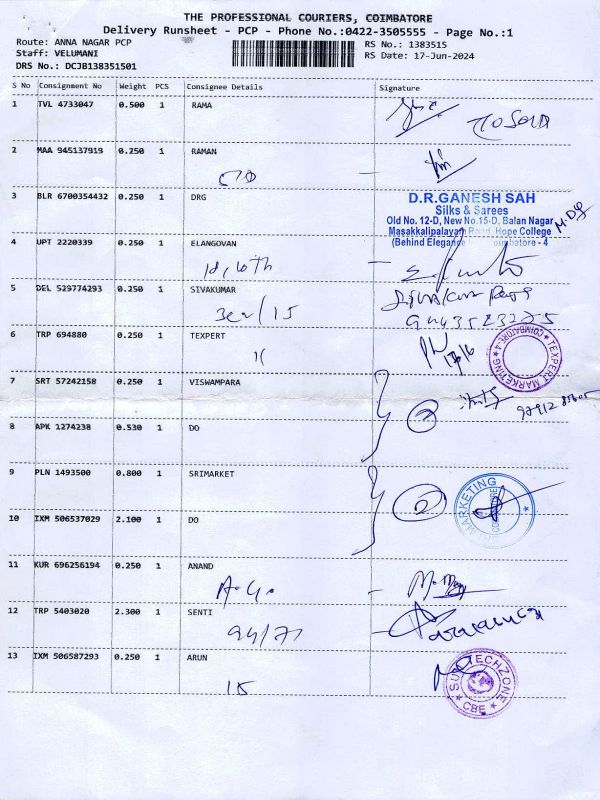 THE PROFESSIONAL COURIERS, COIMBATORE
Delivery Runsheet - PCP - Phone No.:0422-3505555 - Page No.:1
Route: ANNA NAGAR PCP
RS No.: 1383515
Staff: VELUMANI
RS Date: 17-Jun-2024
DRS No.: DCJB138351501
S No Consignment No Weight PCS Consignee Details Signature
1 TVL 4733047 0.500 1 RAMA
2 MAA 945137919 0.250 1 RAMAN
3 BLR 6700354432 0.250 1 DRG
D.R.GANESH SAH
Silks & Sarees
Old No. 12-D, New No.15-D, Balan Nagar
Masakkalipalayam Road, Hope College
(Behind Elegance Coimbatore - 4
4 UPT 2220339 0.250 1 ELANGOVAN
5 DEL 529774293 0.250 1 SIVAKUMAR
6 TRP 694880 0.250 1 TEXPERT
TEXPERT MARKETING
COIMBATORE-4
7 SRT 57242158 0.250 1 VISWAMPARA
8 APK 1274238 0.530 1 DO
2
9 PLN 1493500 0.800 1 SRIMARKET
MARKETING
2
10 IXM 506537029 2.100 1 DO
11 KUR 696256194 0.250 1 ANAND
12 TRP 5403020 2.300 1 SENTI
94/77
13 IXM 506587293 0.250 1 ARUN
15
TECHZONE
CBE